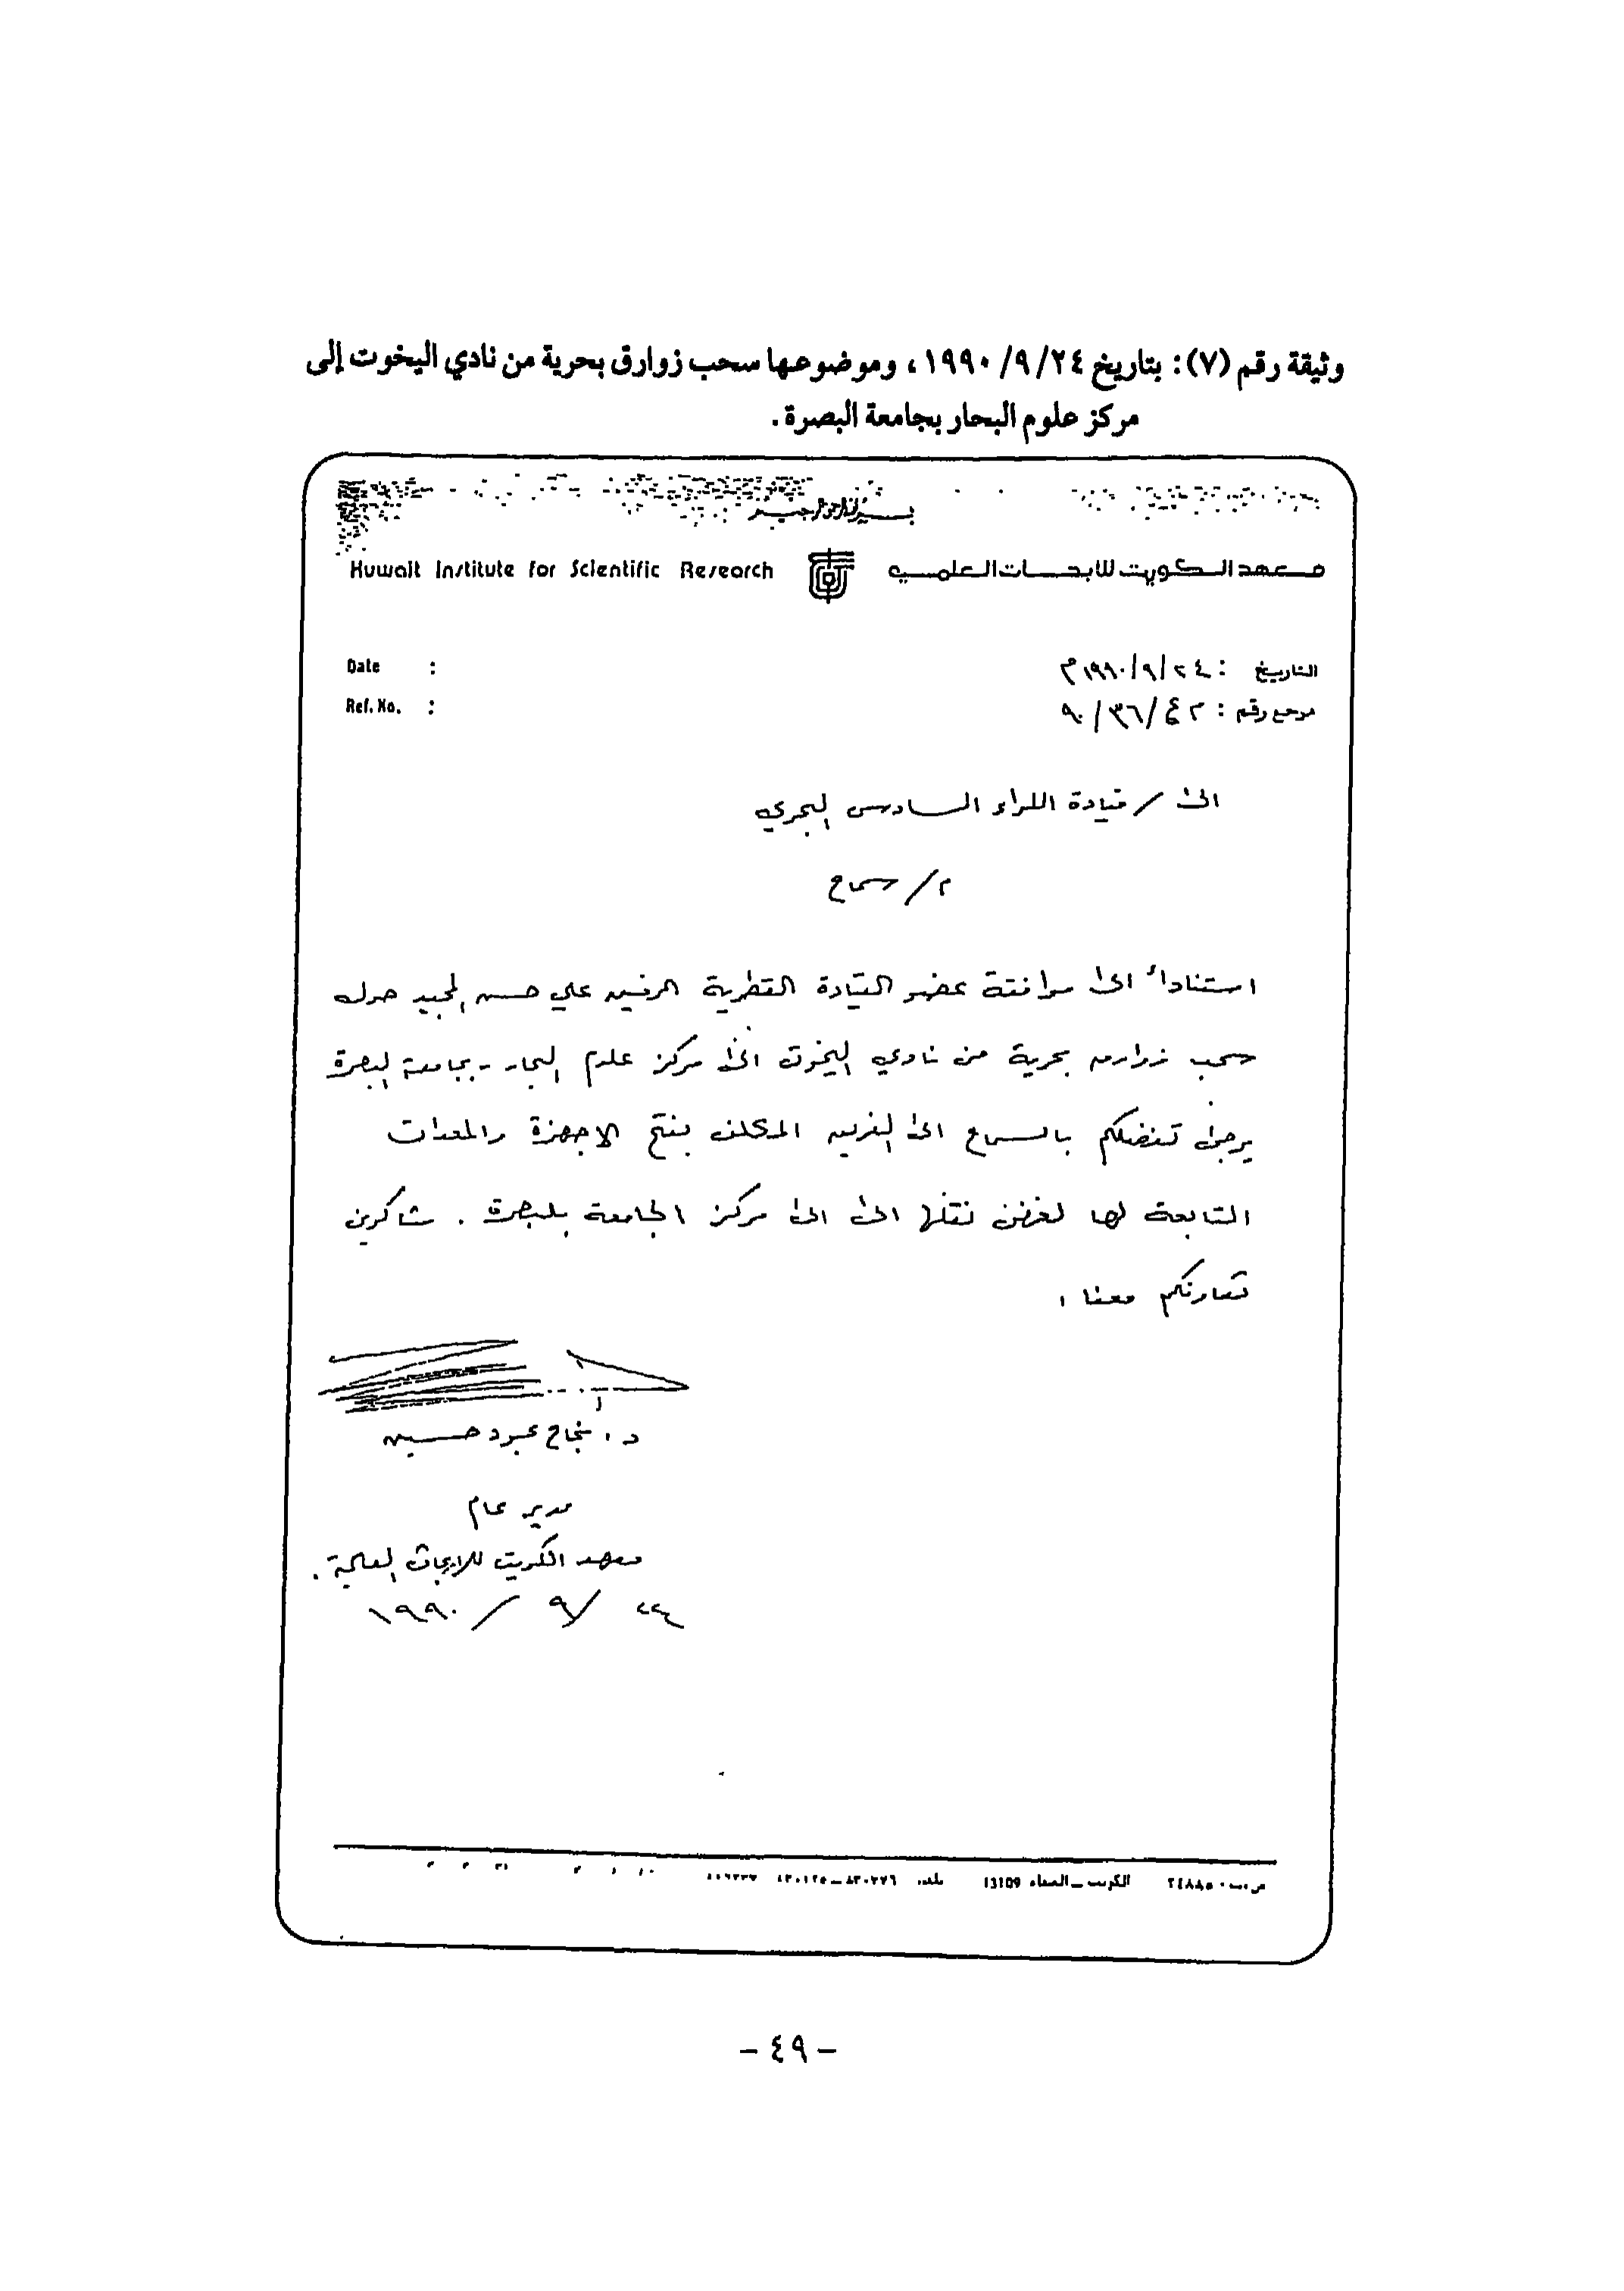 وثيقة رقم (٧): بتاريخ ٢٤/ ٩/ ١٩٩٠، وموضوعها سحب زوارق بحرية من نادي اليخوت إلى
مركز علوم البحار بجامعة البصرة.
بسم الله الرحمن الرحيم
معهد الكويت للابحاث العلمي
Kuwait Institute for Scientific Research
التاريخ : ٢٤/٩/١٩٩٠م
Date :
مرجع رقم : ٤٢/٣٦/٩٠
Ref. No. :
الى / قيادة اللواء السادس البحري
م/ سماح
استناداً الى موافقة عضو القيادة القطرية الرفيق علي حسن المجيد حول
سحب زوارق بحرية من نادي اليخوت الى مركز علوم البحار - بجامعة البصرة
يرجى تفضلكم بالسماح الى الفريق المكلف بفتح الاجهزة والمعدات
التابعة لها لغرض نقلها الى الى مركز الجامعة بالبصرة . شاكرين
تعاونكم معنا .
د. نجاح عبود حسين
مدير عام
معهد الكويت للابحاث العلمية .
٢٤ / ٩ / ١٩٩٠
ص.ب. ٢٤٨٨٥ الكويت - الصفاة 13109
- ٤٩ -